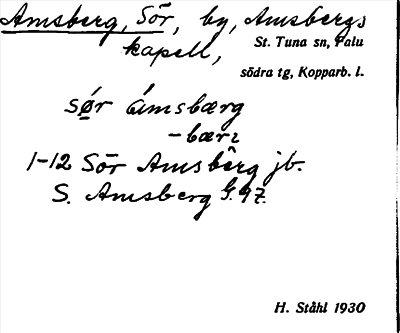 Amsberg, Sör, by, Amsbergs
kapell, St. Tuna sn, Falu
södra tg, Kopparb. l.
sø̀r ámsbærg
-bærı
1-12 Sör Amsberg jb.
S. Amsberg G. 97.
H. Ståhl 1930